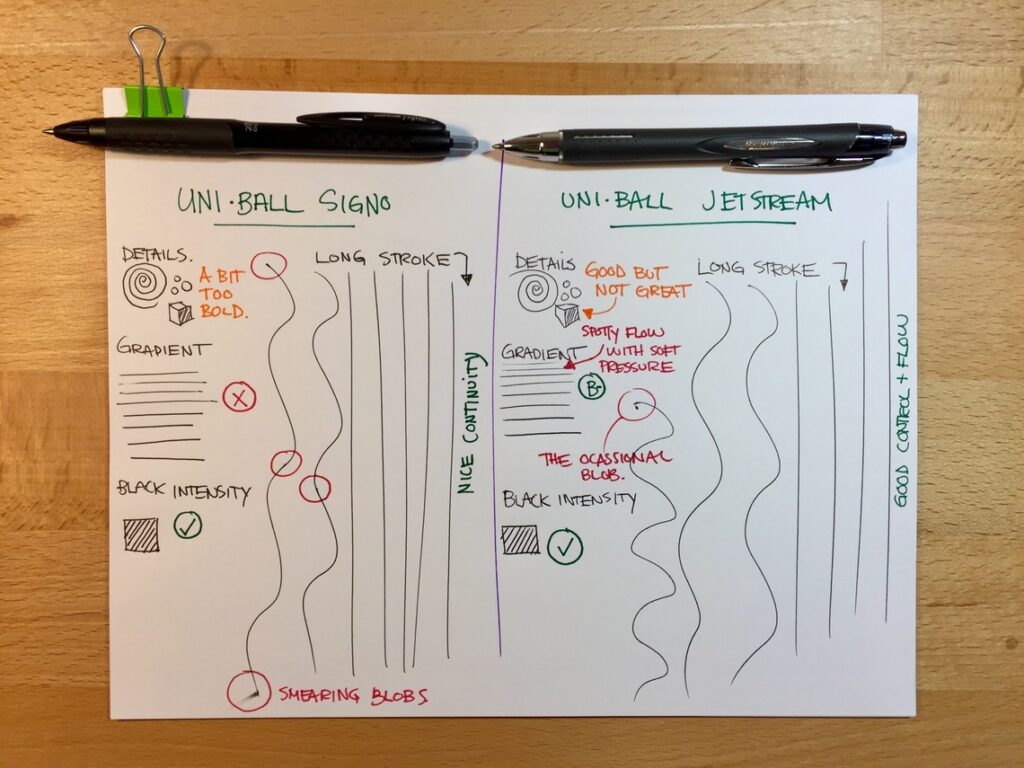 UNI·BALL SIGNO
DETAILS.
A BIT
TOO
BOLD.
LONG STROKE
GRADIENT
X
NICE CONTINUITY
BLACK INTENSITY
SMEARING BLOBS
UNI·BALL JETSTREAM
DETAILS
GOOD BUT
NOT GREAT
LONG STROKE
SPOTTY FLOW
WITH SOFT
PRESSURE
GRADIENT
B-
THE OCASSIONAL
BLOB.
BLACK INTENSITY
GOOD CONTROL + FLOW